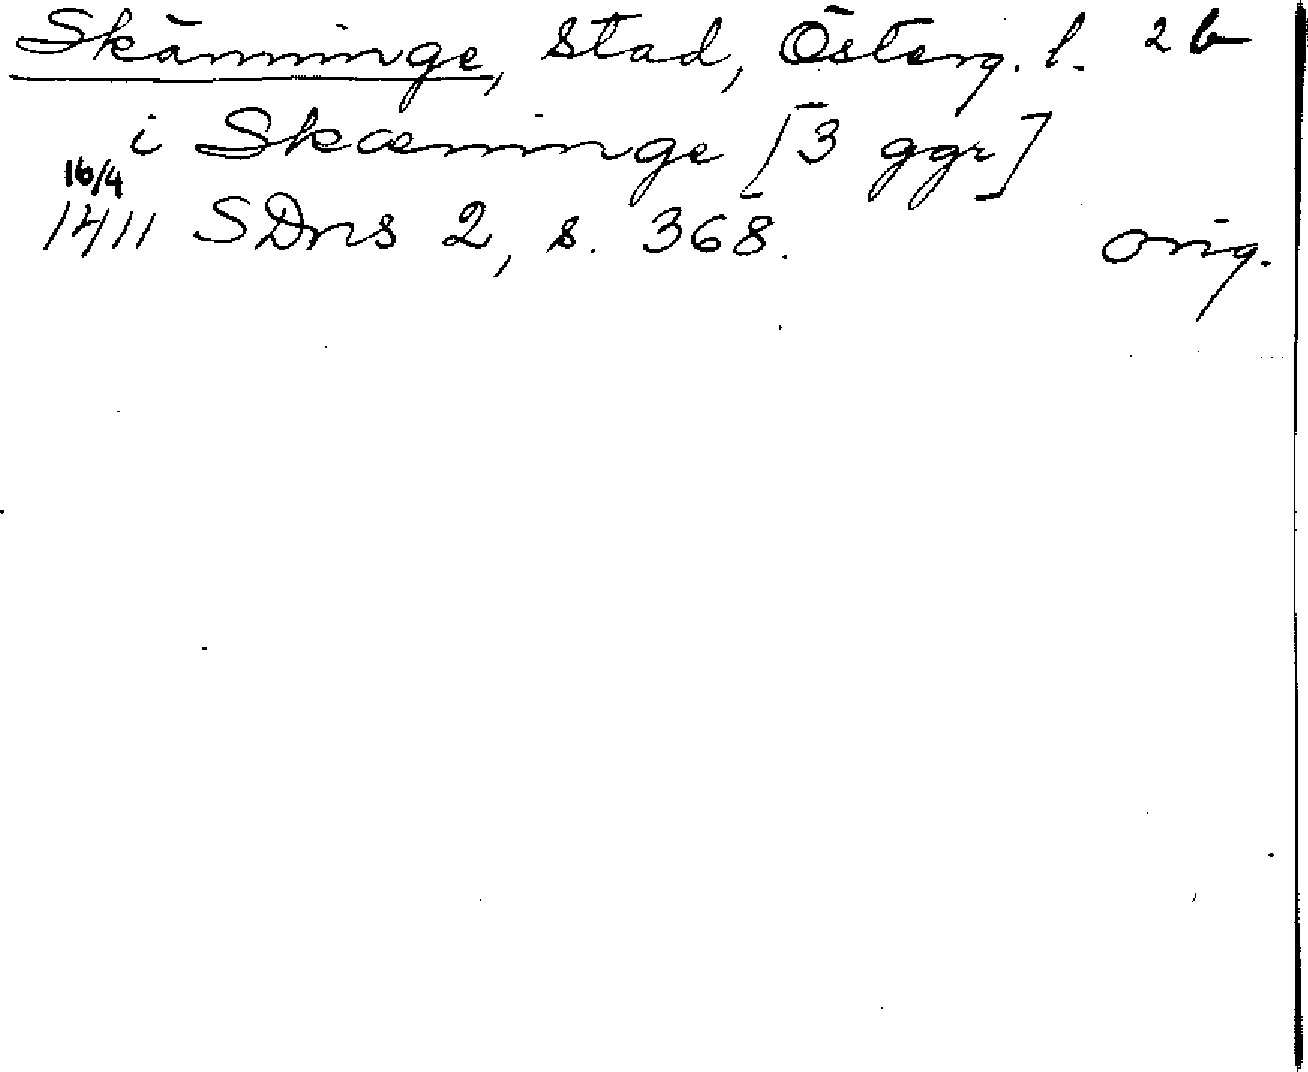 Skänninge, stad, Österg. l. 2 b
i Skæninge [3 ggr]
16/4
1411 SDns 2, s. 368. orig.